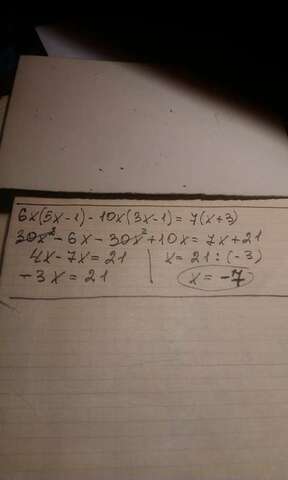 6x(5x-1)-10x(3x-1)=7(x+3)
30x²-6x-30x²+10x=7x+21
4x-7x=21 | x=21:(-3)
-3x=21 x=-7